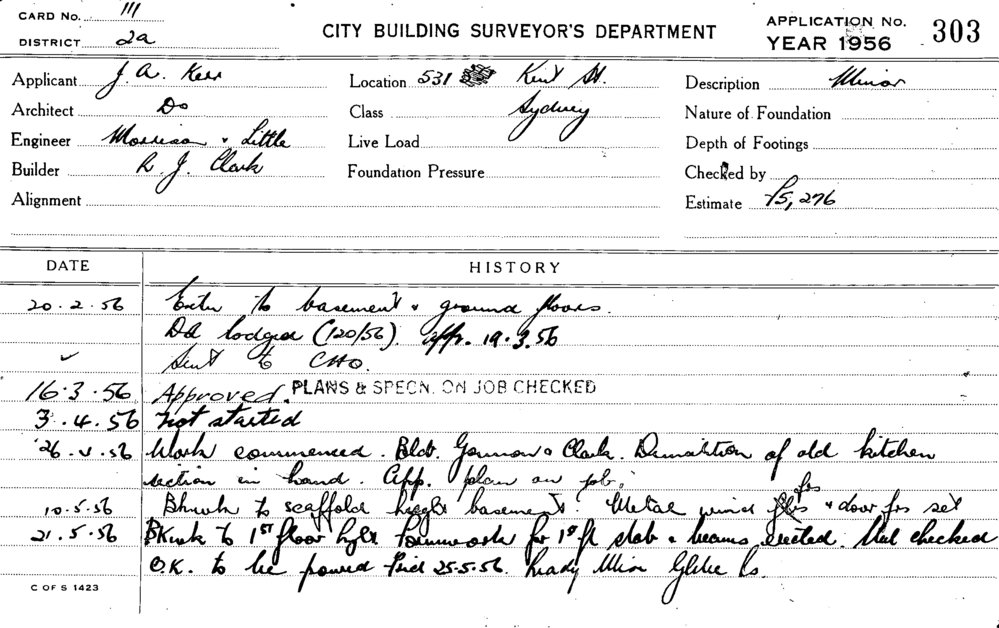 CARD NO. 111
DISTRICT 2a
CITY BUILDING SURVEYOR'S DEPARTMENT
APPLICATION NO. 303
YEAR 1956
Applicant J. A. Kerr
Architect Do
Engineer Morrison & Little
Builder R. J. Clark
Alignment
Location 531 Kent St.
Class Sydney
Live Load
Foundation Pressure
Description Minor
Nature of Foundation
Depth of Footings
Checked by
Estimate £5,276
DATE HISTORY
20.2.56 Exten to basement & ground floors.
DA lodged (120/56). Appr. 19.3.56
✓ Sent to CHO.
16.3.56 Approved. PLANS & SPECN. ON JOB CHECKED
3.4.56 Not started
26.4.56 Work commenced. Bldr. & Clark. Demolition of old kitchen
section in hand. App. plan on job.
10.5.56 Bkwork to scaffold height basement. Metal wind frs & door frs set
21.5.56 Bkwork to 1st floor hght Formwork for 1st fl slab & beams erected. Steel checked
O.K. to be poured Frid 25.5.56. Ready Mix Glebe Co.
C OF S 1423